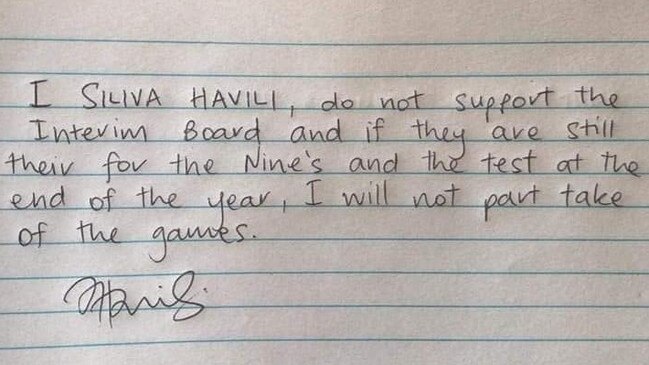 I SILIVA HAVILI, do not support the
Interim Board and if they are still
their for the Nine's and the test at the
end of the year, I will not part take
of the games.